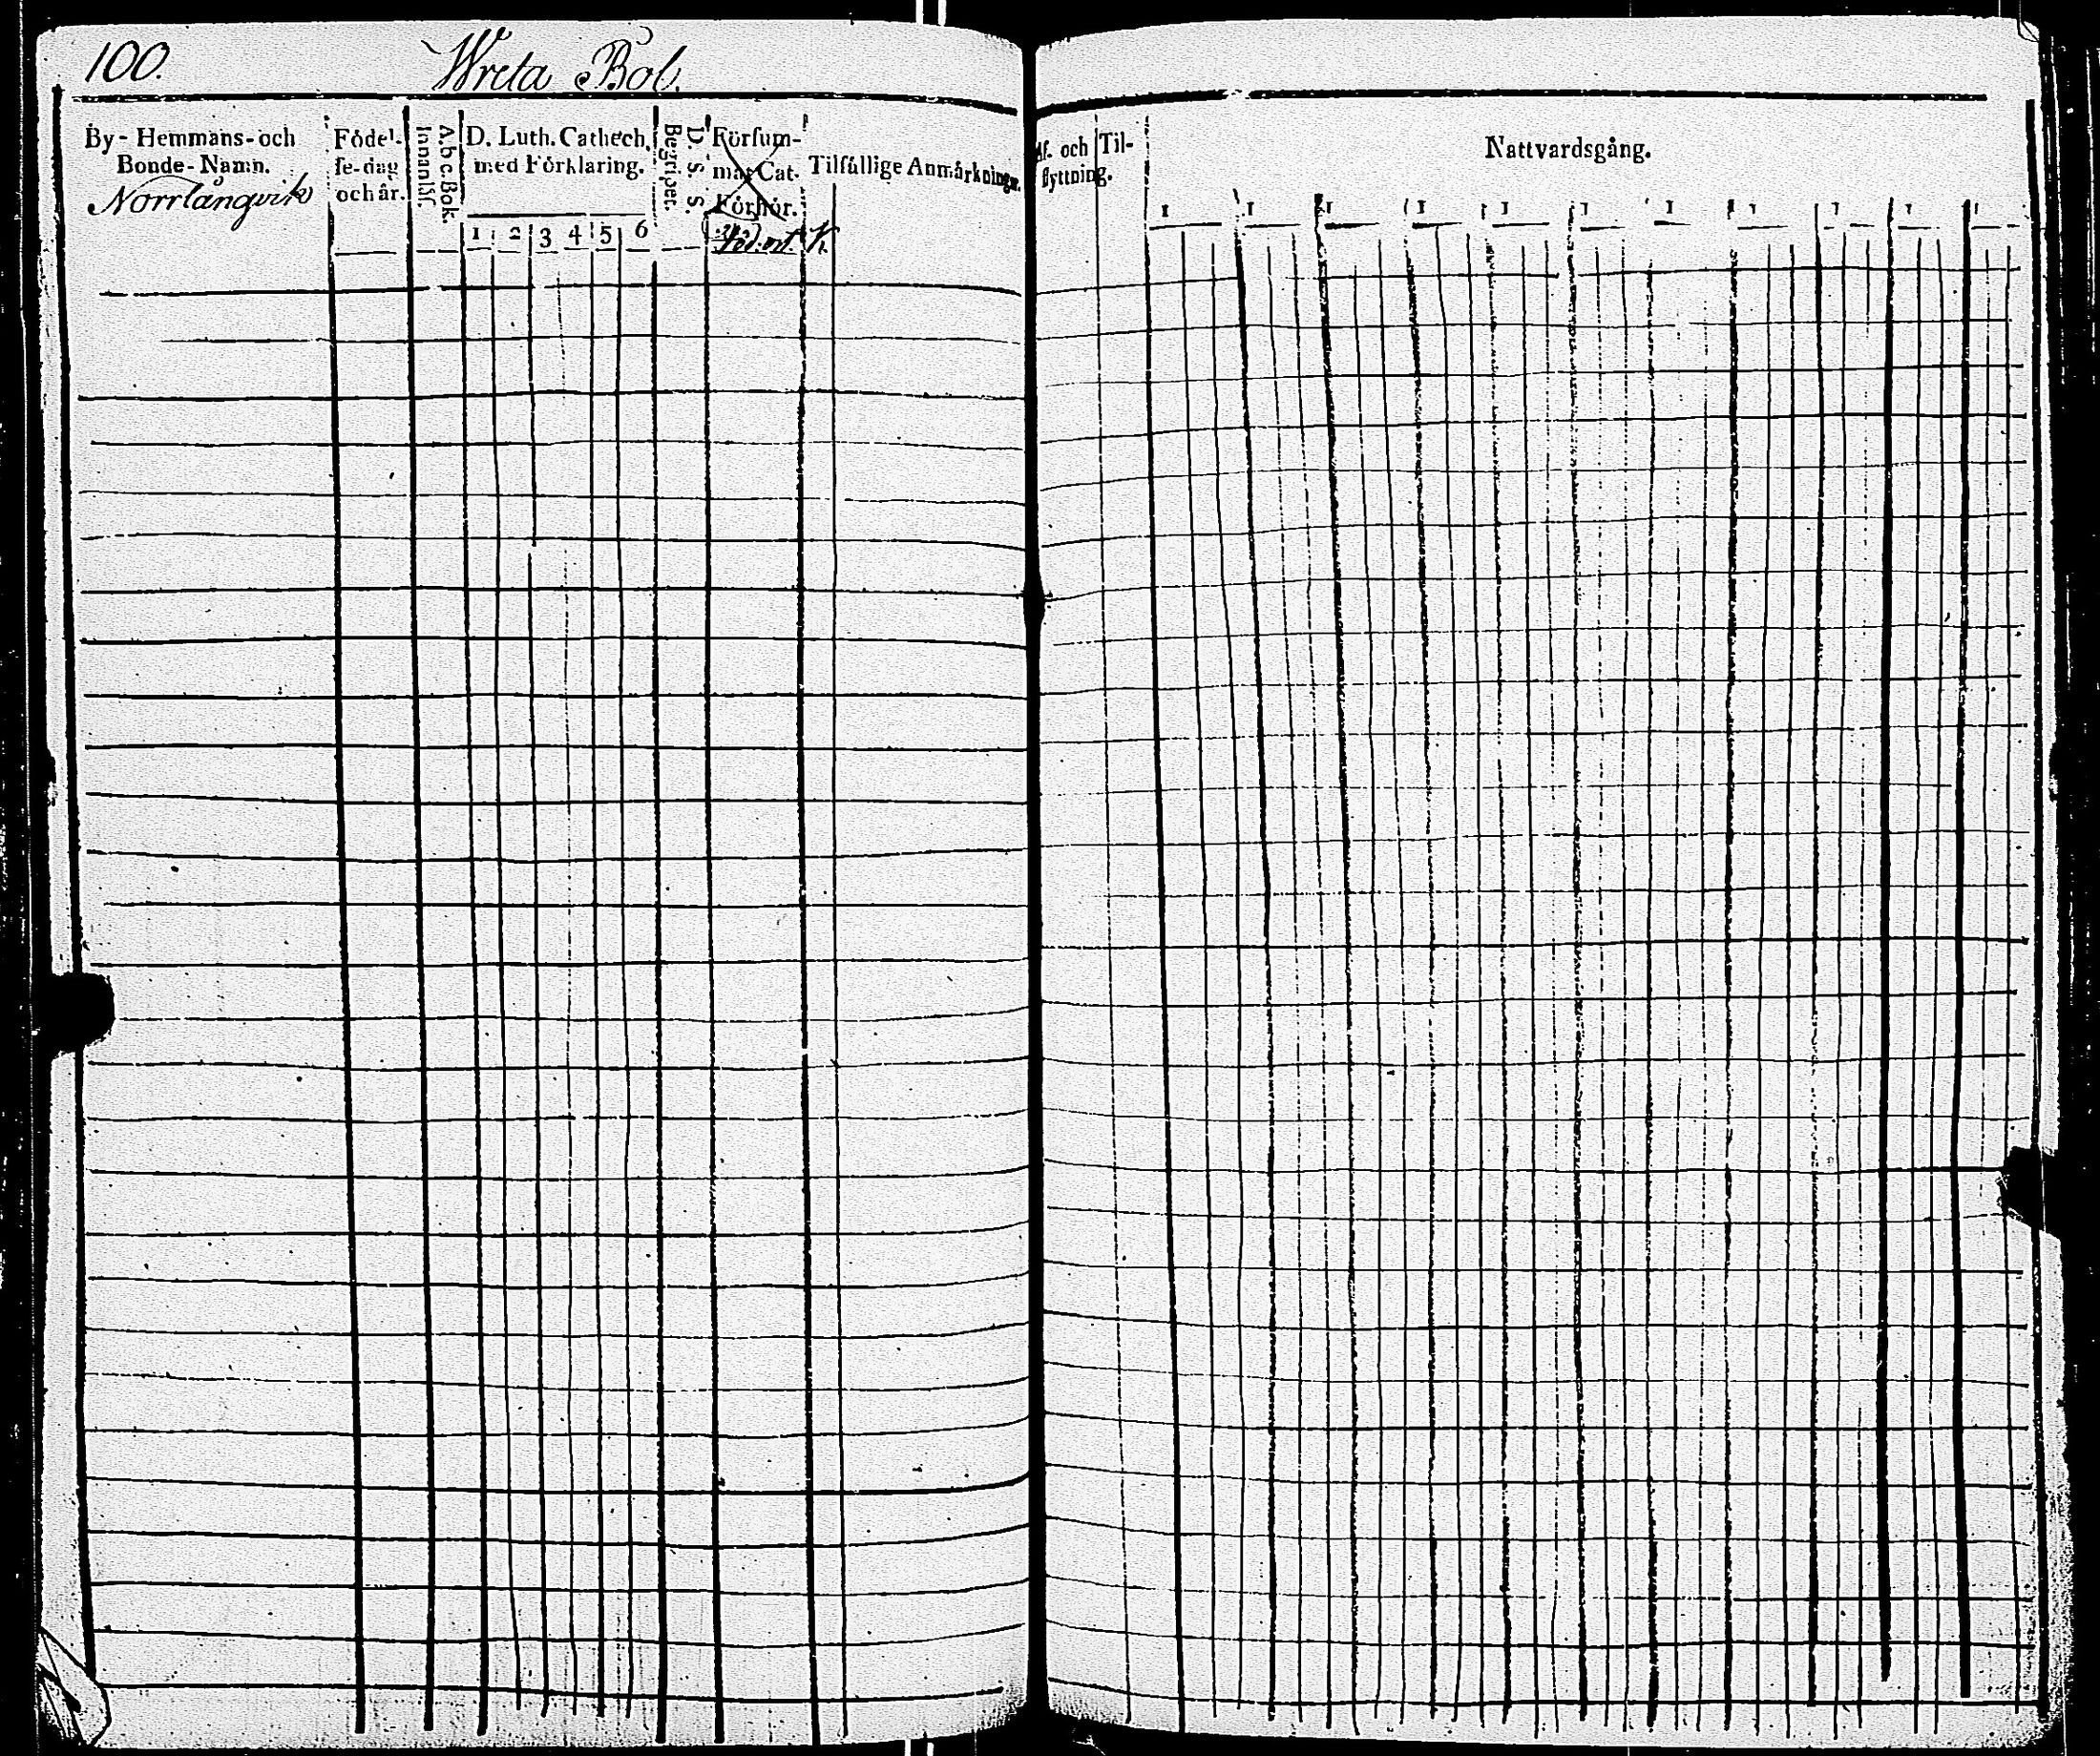 100.
Wreta Bol.
By-Hemmans-och
Bonde-Namn.
Norrlångvik
Födel-
se-dag
och år.
A.b.c.Bok
Innanläs.
D. Luth. Cathech.
med Förklaring.
1 2 3 4 5 6
D. S. S.
Begripet.
Försum-
mat Cat.
Förhör.
Tilfällige Anmärkningr.
Af- och Til-
flyttning.
Nattvardsgång.
1 1 1 1 1 1 1 1 1 1 1